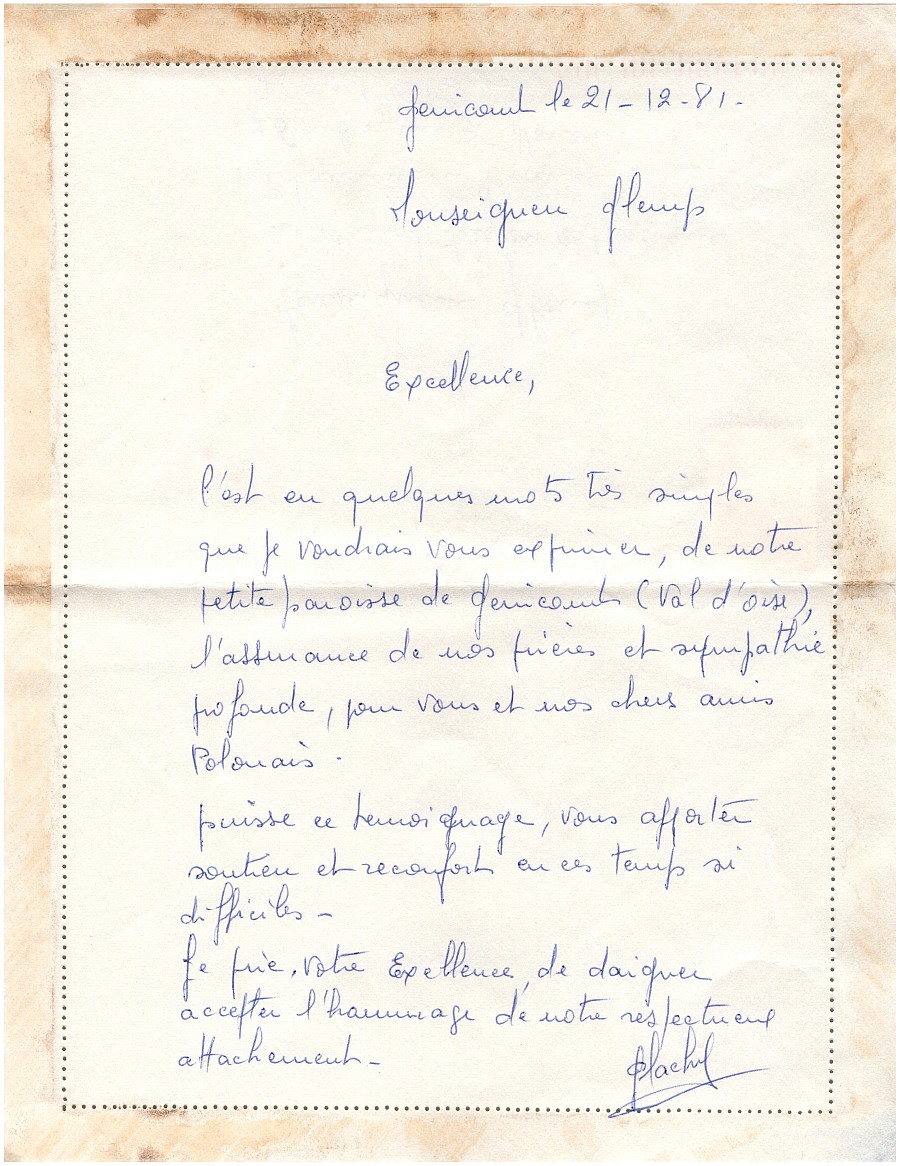 Genicourt le 21-12-81.
Monseigneur Glemp
Excellence,
C'est en quelques mots très simples
que je voudrais vous exprimer, de notre
petite paroisse de Genicourt (Val d'oise),
l'assurance de nos prières et sympathie
profonde, pour vous et nos chers amis
Polonais.
puisse ce temoignage, vous apporter
soutien et reconfort en ces temps si
difficiles -
Je prie, votre Exellence, de daigner
accepter l'hommage de notre respectueux
attachement -